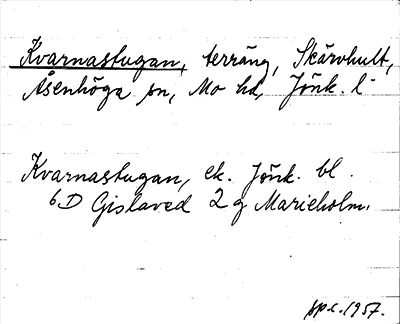 Kvarnastugan, terräng, Skärvhult,
Åsenhöga sn, Mo hd, Jönk. l
Kvarnastugan, ek. Jönk. bl.
6D Gislaved 2 g Marieholm.
1957.